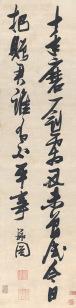 十年磨一劍霜刃未曾試今日
把贈君誰有不平事